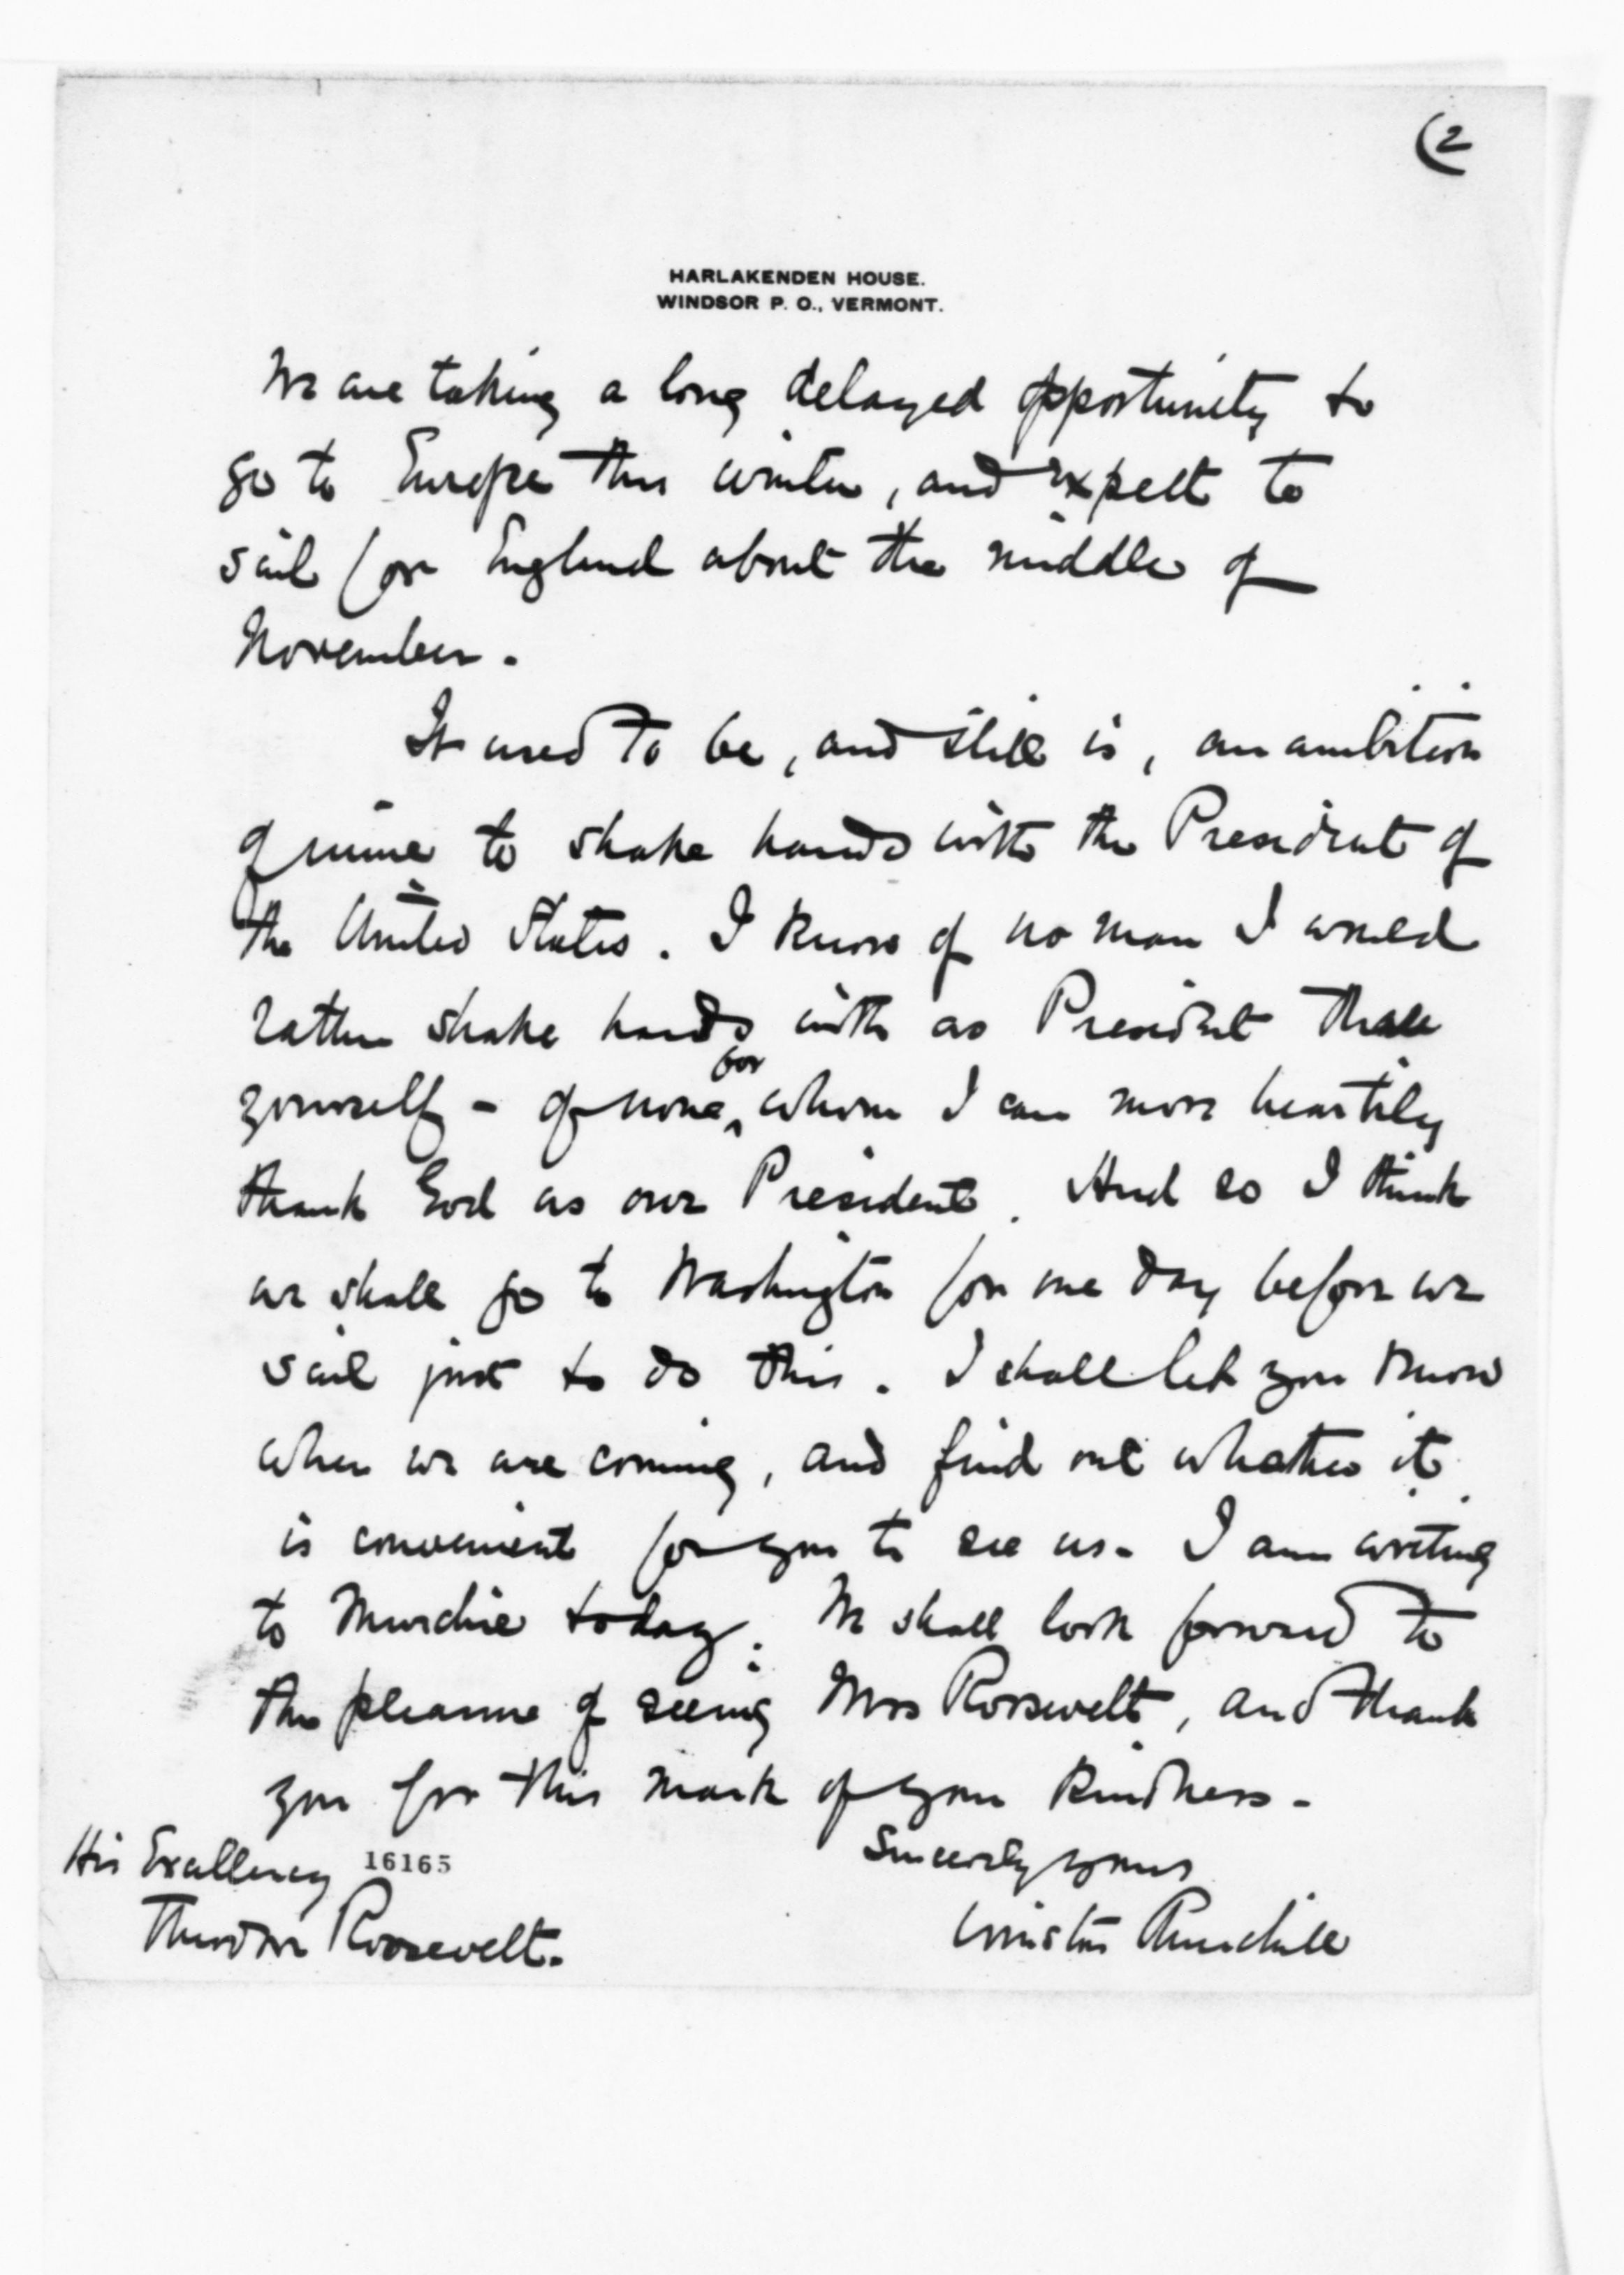 (2
HARLAKENDEN HOUSE.
WINDSOR P. O., VERMONT.
We are taking a long delayed opportunity to
go to Europe this winter, and expect to
sail for England about the middle of
November.
It used to be, and still is, an ambition
of mine to shake hands with the President of
the United States. I know of no man I would
rather shake hands with as President than
yourself - of none for whom I can more heartily
thank God as our President. And so I think
we shall go to Washington for one day before we
sail just to do this. I shall let you know
when we are coming, and find out whether it
is convenient for you to see us. I am writing
to Murchie today. We shall look forward to
the pleasure of seeing Mrs Roosevelt, and thank
you for this mark of your kindness.
Sincerely yours
His Excellency 16165
Theodore Roosevelt.
Winston Churchill